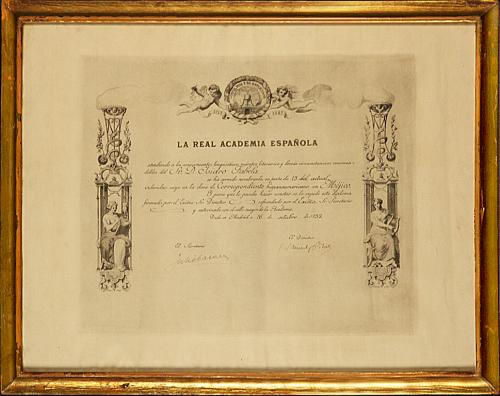 LA REAL ACADEMIA ESPAÑOLA
atendiendo a los conocimientos lingüísticos, méritos literarios y demás circunstancias recomendables del Sr. D. Isidro Fabela
se ha servido nombrarle, en junta de 13 del actual
individuo suyo en la clase de Correspondiente hispanoamericano en Méjico.
Y para que lo pueda hacer constar se le expide este diploma
firmado por el Excmo. Sr. Director, refrendado por el Excmo. Sr. Secretario
y autorizado con el sello mayor de la Academia.
Dado en Madrid a 16 de octubre de 1932
El Secretario
El Director